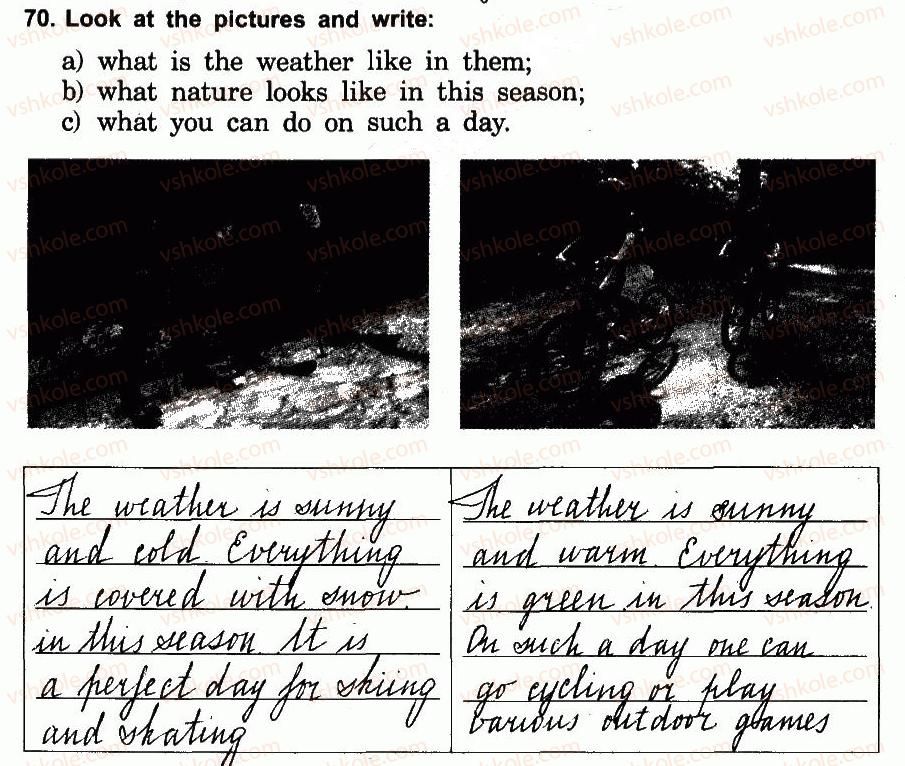 70. Look at the pictures and write:
a) what is the weather like in them;
b) what nature looks like in this season;
c) what you can do on such a day.
The weather is sunny
and cold. Everything
is covered with snow
in this season. It is
a perfect day for skiing
and skating
The weather is sunny
and warm. Everything
is green in this season.
On such a day one can
go cycling or play
various outdoor games
vshkole.com